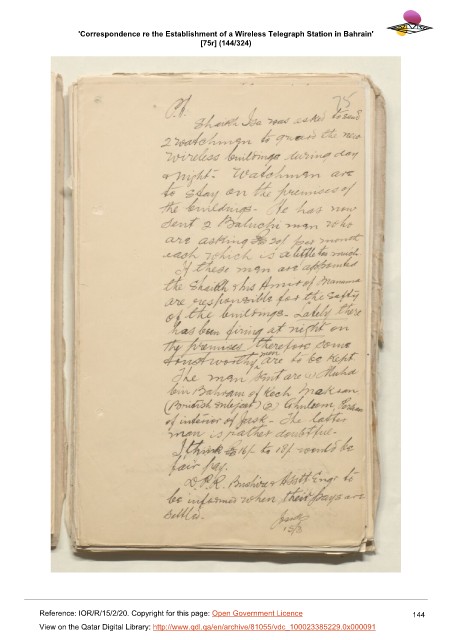 'Correspondence re the Establishment of a Wireless Telegraph Station in Bahrain'
[75r] (144/324)
75
P.A.
Shaikh Isa was asked to send
2 watchmen to guard the new
wireless buildings during day
& night. Watchmen are
to stay on the premises of
the buildings. He has now
sent 2 Baluchi men who
are asking 20/ per month
each which is a little too much
If these men are appointed
the Shaikh & his Amir of Manama
are responsible for the safty
of the buildings. Lately there
has been firing at night on
the premises therefore some
trustworthy men are to be kept
The men sent are (1)
bin Bahram of Kech Mekran
(British subject) (2) Ghulam
of interior of Jask. The latter
man is rather doubtful.
I think 16/ to 18/ would be
fair pay.
D.P.R. Bushire & Asstt Engr to
be informed when their pays are
settled.
15/3
Reference: IOR/R/15/2/20. Copyright for this page: Open Government Licence
144
View on the Qatar Digital Library: http://www.qdl.qa/en/archive/81055/vdc_100023385229.0x000091